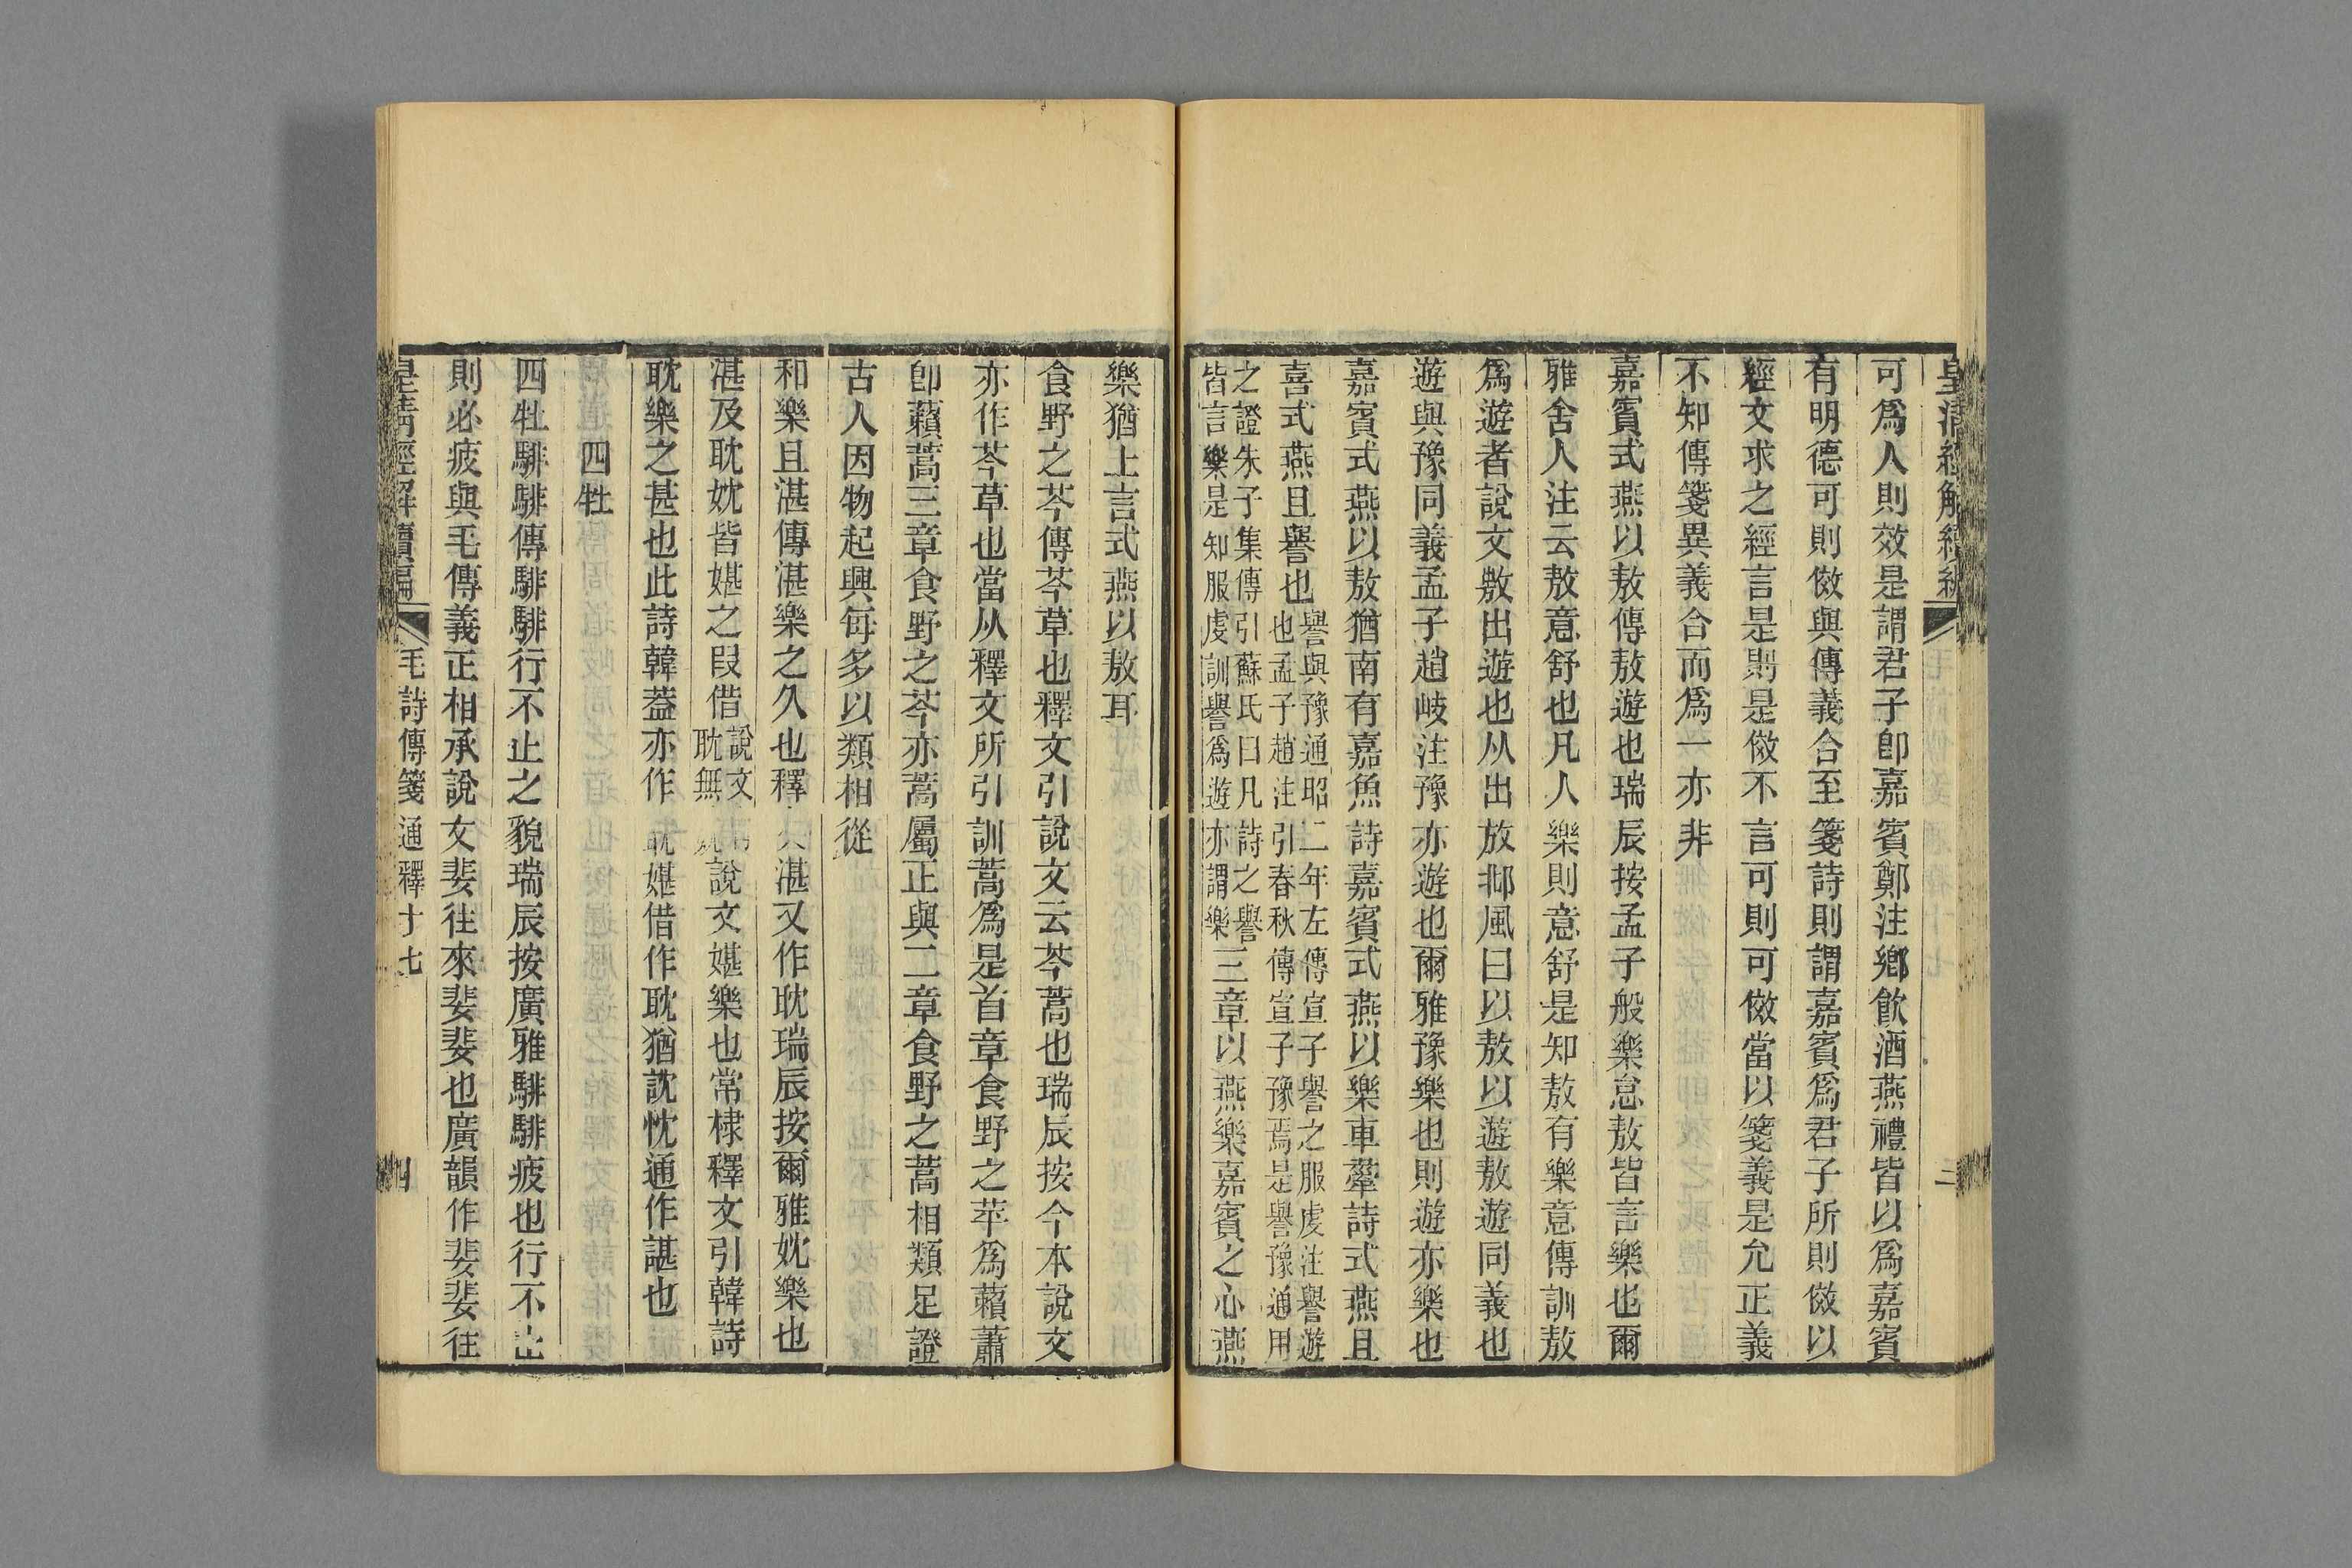 可爲人則效是謂君子卽嘉賓鄭注鄉飮酒燕禮皆以爲嘉賓
有明德可則傚與傳義合至箋詩則謂嘉賓爲君子所則傚以
經文求之經言是則是傚不言可則可傚當以箋義是允正義
不知傳箋異義合而爲一亦非
嘉賓式燕以敖傳敖遊也瑞辰按孟子般樂怠敖皆言樂也爾
雅舍人注云敖意舒也凡人樂則意舒是知敖有樂意傳訓敖
爲遊者說文敖出遊也从出放邶風曰以敖以遊敖遊同義也
遊與豫同義孟子趙岐注豫亦遊也爾雅豫樂也則遊亦樂也
嘉賓式燕以敖猶南有嘉魚詩嘉賓式燕以樂車舝詩式燕且
喜式燕且譽也
譽與豫通昭二年左傳宣子譽之服虔注譽遊
也孟子趙注引春秋傳宣子豫焉是譽豫通用
之證朱子集傳引蘇氏曰凡詩之譽
皆言樂是知服虔訓譽爲遊亦謂樂
三章以燕樂嘉賓之心燕
樂猶上言式燕以敖耳
食野之芩傳芩草也釋文引說文云芩蒿也瑞辰按今本說文
亦作芩草也當从釋文所引訓蒿爲是首章食野之苹爲藾蕭
卽藾蒿三章食野之芩亦蒿屬正與二章食野之蒿相類足證
古人因物起興每多以類相從
和樂且湛傳湛樂之久也釋文湛又作耽瑞辰按爾雅妉樂也
湛及耽妉皆媅之叚借
說文
耽無
說文媅樂也常棣釋文引韓詩
耽樂之甚也此詩韓葢亦作耽媅借作耽猶訦忱通作諶也
四牡
四牡騑騑傳騑騑行不止之貌瑞辰按廣雅騑騑疲也行不止
則必疲與毛傳義正相承說文婓往來婓婓也廣韻作婓婓往
皇清經解續編
毛詩傳箋通釋十七
四